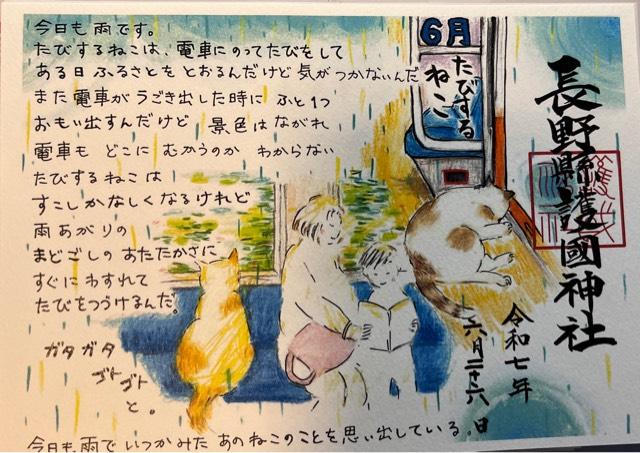 今日も雨です。
たびするねこは、電車にのってたびをして
ある日ふるさとをとおるんだけど気がつかないんだ
また電車がうごき出した時にふと1つ
おもい出すんだけど 景色はながれ
電車も どこに むかうのか わからない
たびするねこは
すこしかなしくなるけれど
雨あがりの
まどごしのあたたかさに
すぐにわすれて
たびをつづけるんだ。
ガタガタ
ゴトゴト
と。
今日も、雨で いつかみた あのねこのことを思い出している。
6月
たびする
ねこ
長野縣護國神社
令和七年
六月二十六日